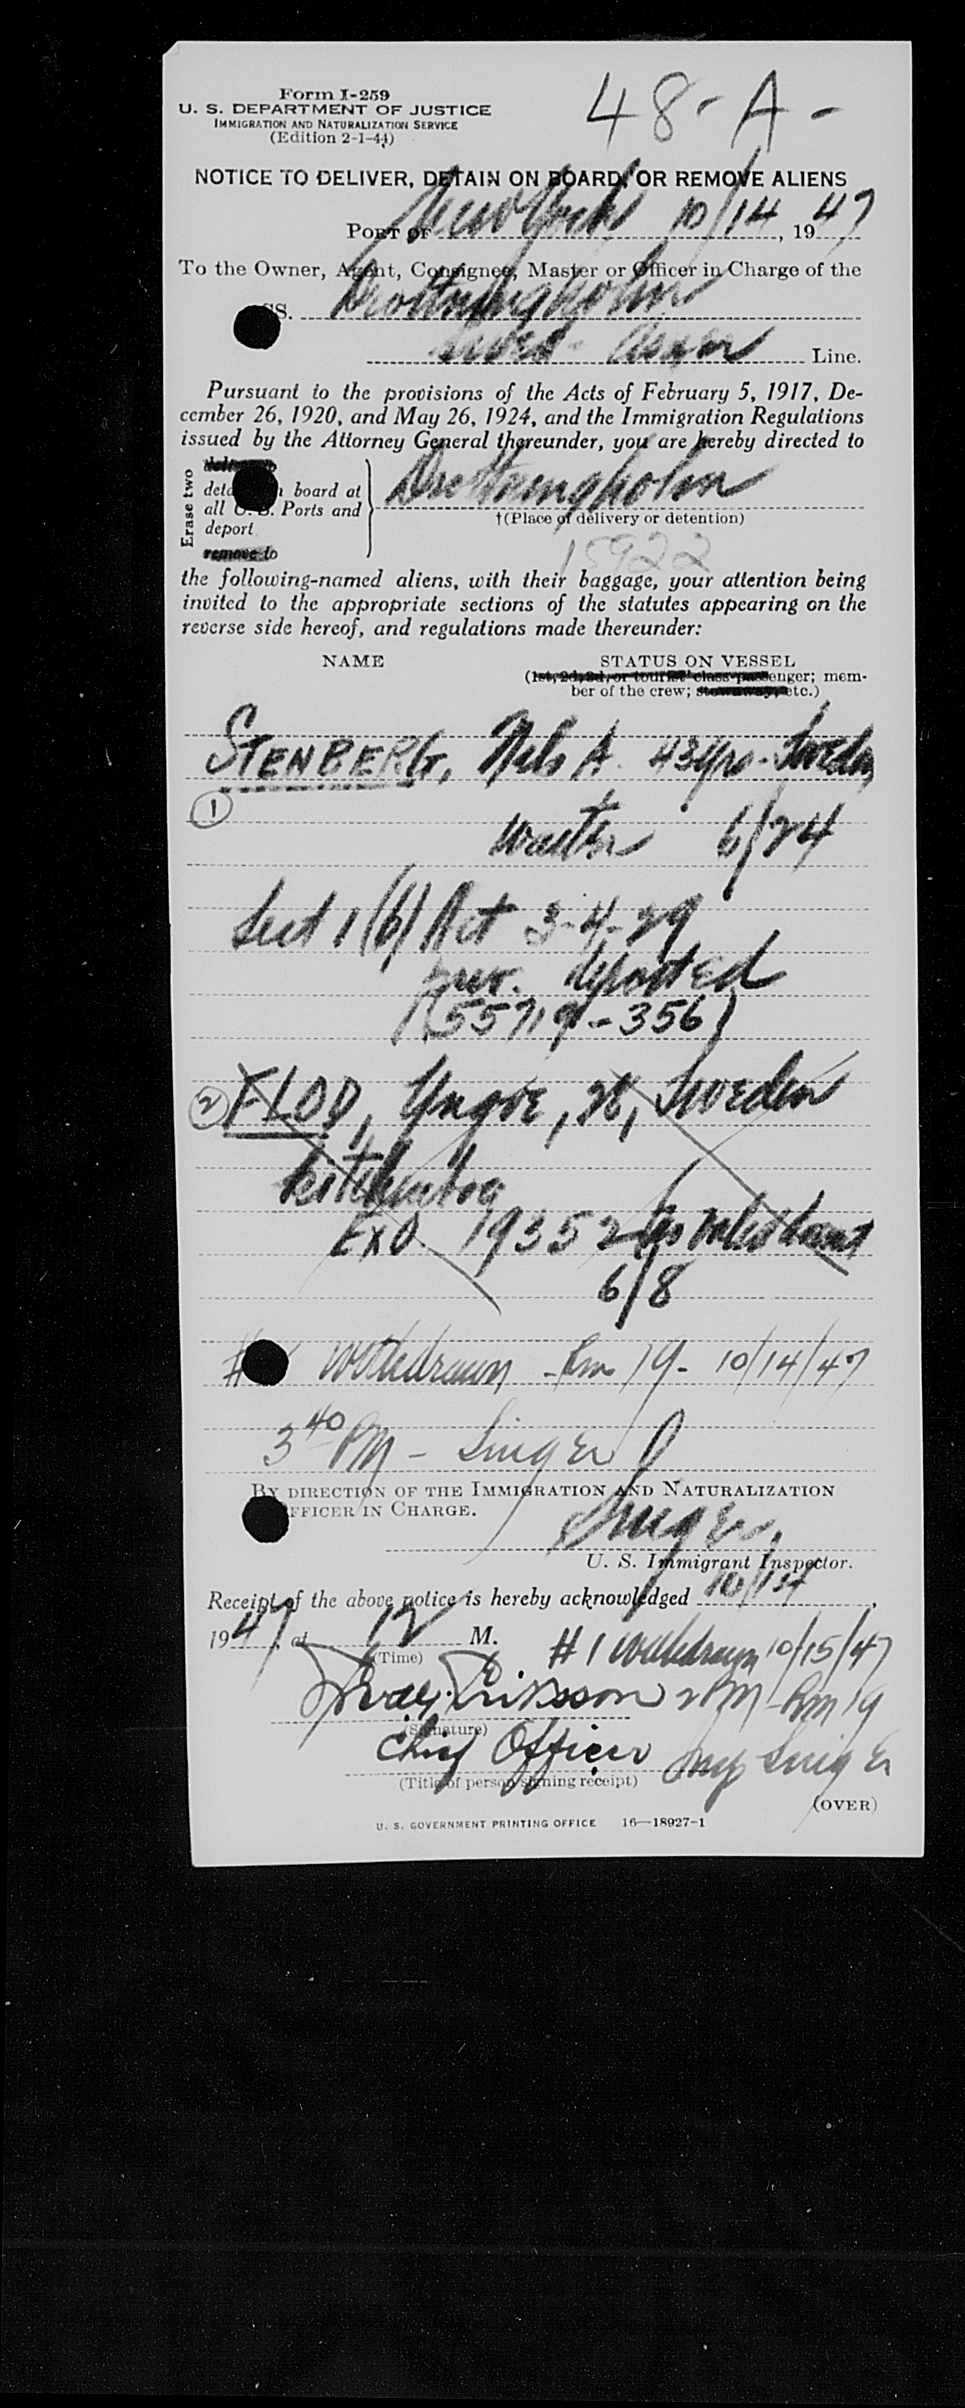 Form I-259
U. S. DEPARTMENT OF JUSTICE
IMMIGRATION AND NATURALIZATION SERVICE
(Edition 2-1-44)
48-A-
NOTICE TO DELIVER, DETAIN ON BOARD, OR REMOVE ALIENS
PORT OF New York 10/14, 1947
To the Owner, Agent, Consignee, Master or Officer in Charge of the
SS. Drottningholm
Swed- Amer Line.
Pursuant to the provisions of the Acts of February 5, 1917, De-
cember 26, 1920, and May 26, 1924, and the Immigration Regulations
issued by the Attorney General thereunder, you are hereby directed to
Erase two
board at
all U. S. Ports and
deport
remove to
Drottningholm
†(Place of delivery or detention)
15922
the following-named aliens, with their baggage, your attention being
invited to the appropriate sections of the statutes appearing on the
reverse side hereof, and regulations made thereunder:
NAME STATUS ON VESSEL
(1st, 2d, 3d, or tourist class passenger; mem-
ber of the crew; stowaway, etc.)
STENBERG, Nils A. 43 yrs - Sweden
1
waiter 6/24
Sect 1 (b) Act 3-4-29
prev. deported
(55719-356)
2 FLOD, Yngve, Sweden
kitchenboy
EXO 19352
6/8
# withdrawn - Rm 19 - 10/14/47
3 40 PM - Singer
BY DIRECTION OF THE IMMIGRATION AND NATURALIZATION
OFFICER IN CHARGE.
Singer
U. S. Immigrant Inspector.
Receipt of the above notice is hereby acknowledged 10/14,
1947, at 12 M.
(Time)
#1 withdrawn 10/15/47
Eriksson 2 PM - Rm 19
(Signature)
Chief Officer Insp Singer
(Title of person signing receipt)
(OVER)
U. S. GOVERNMENT PRINTING OFFICE 16—18927-1